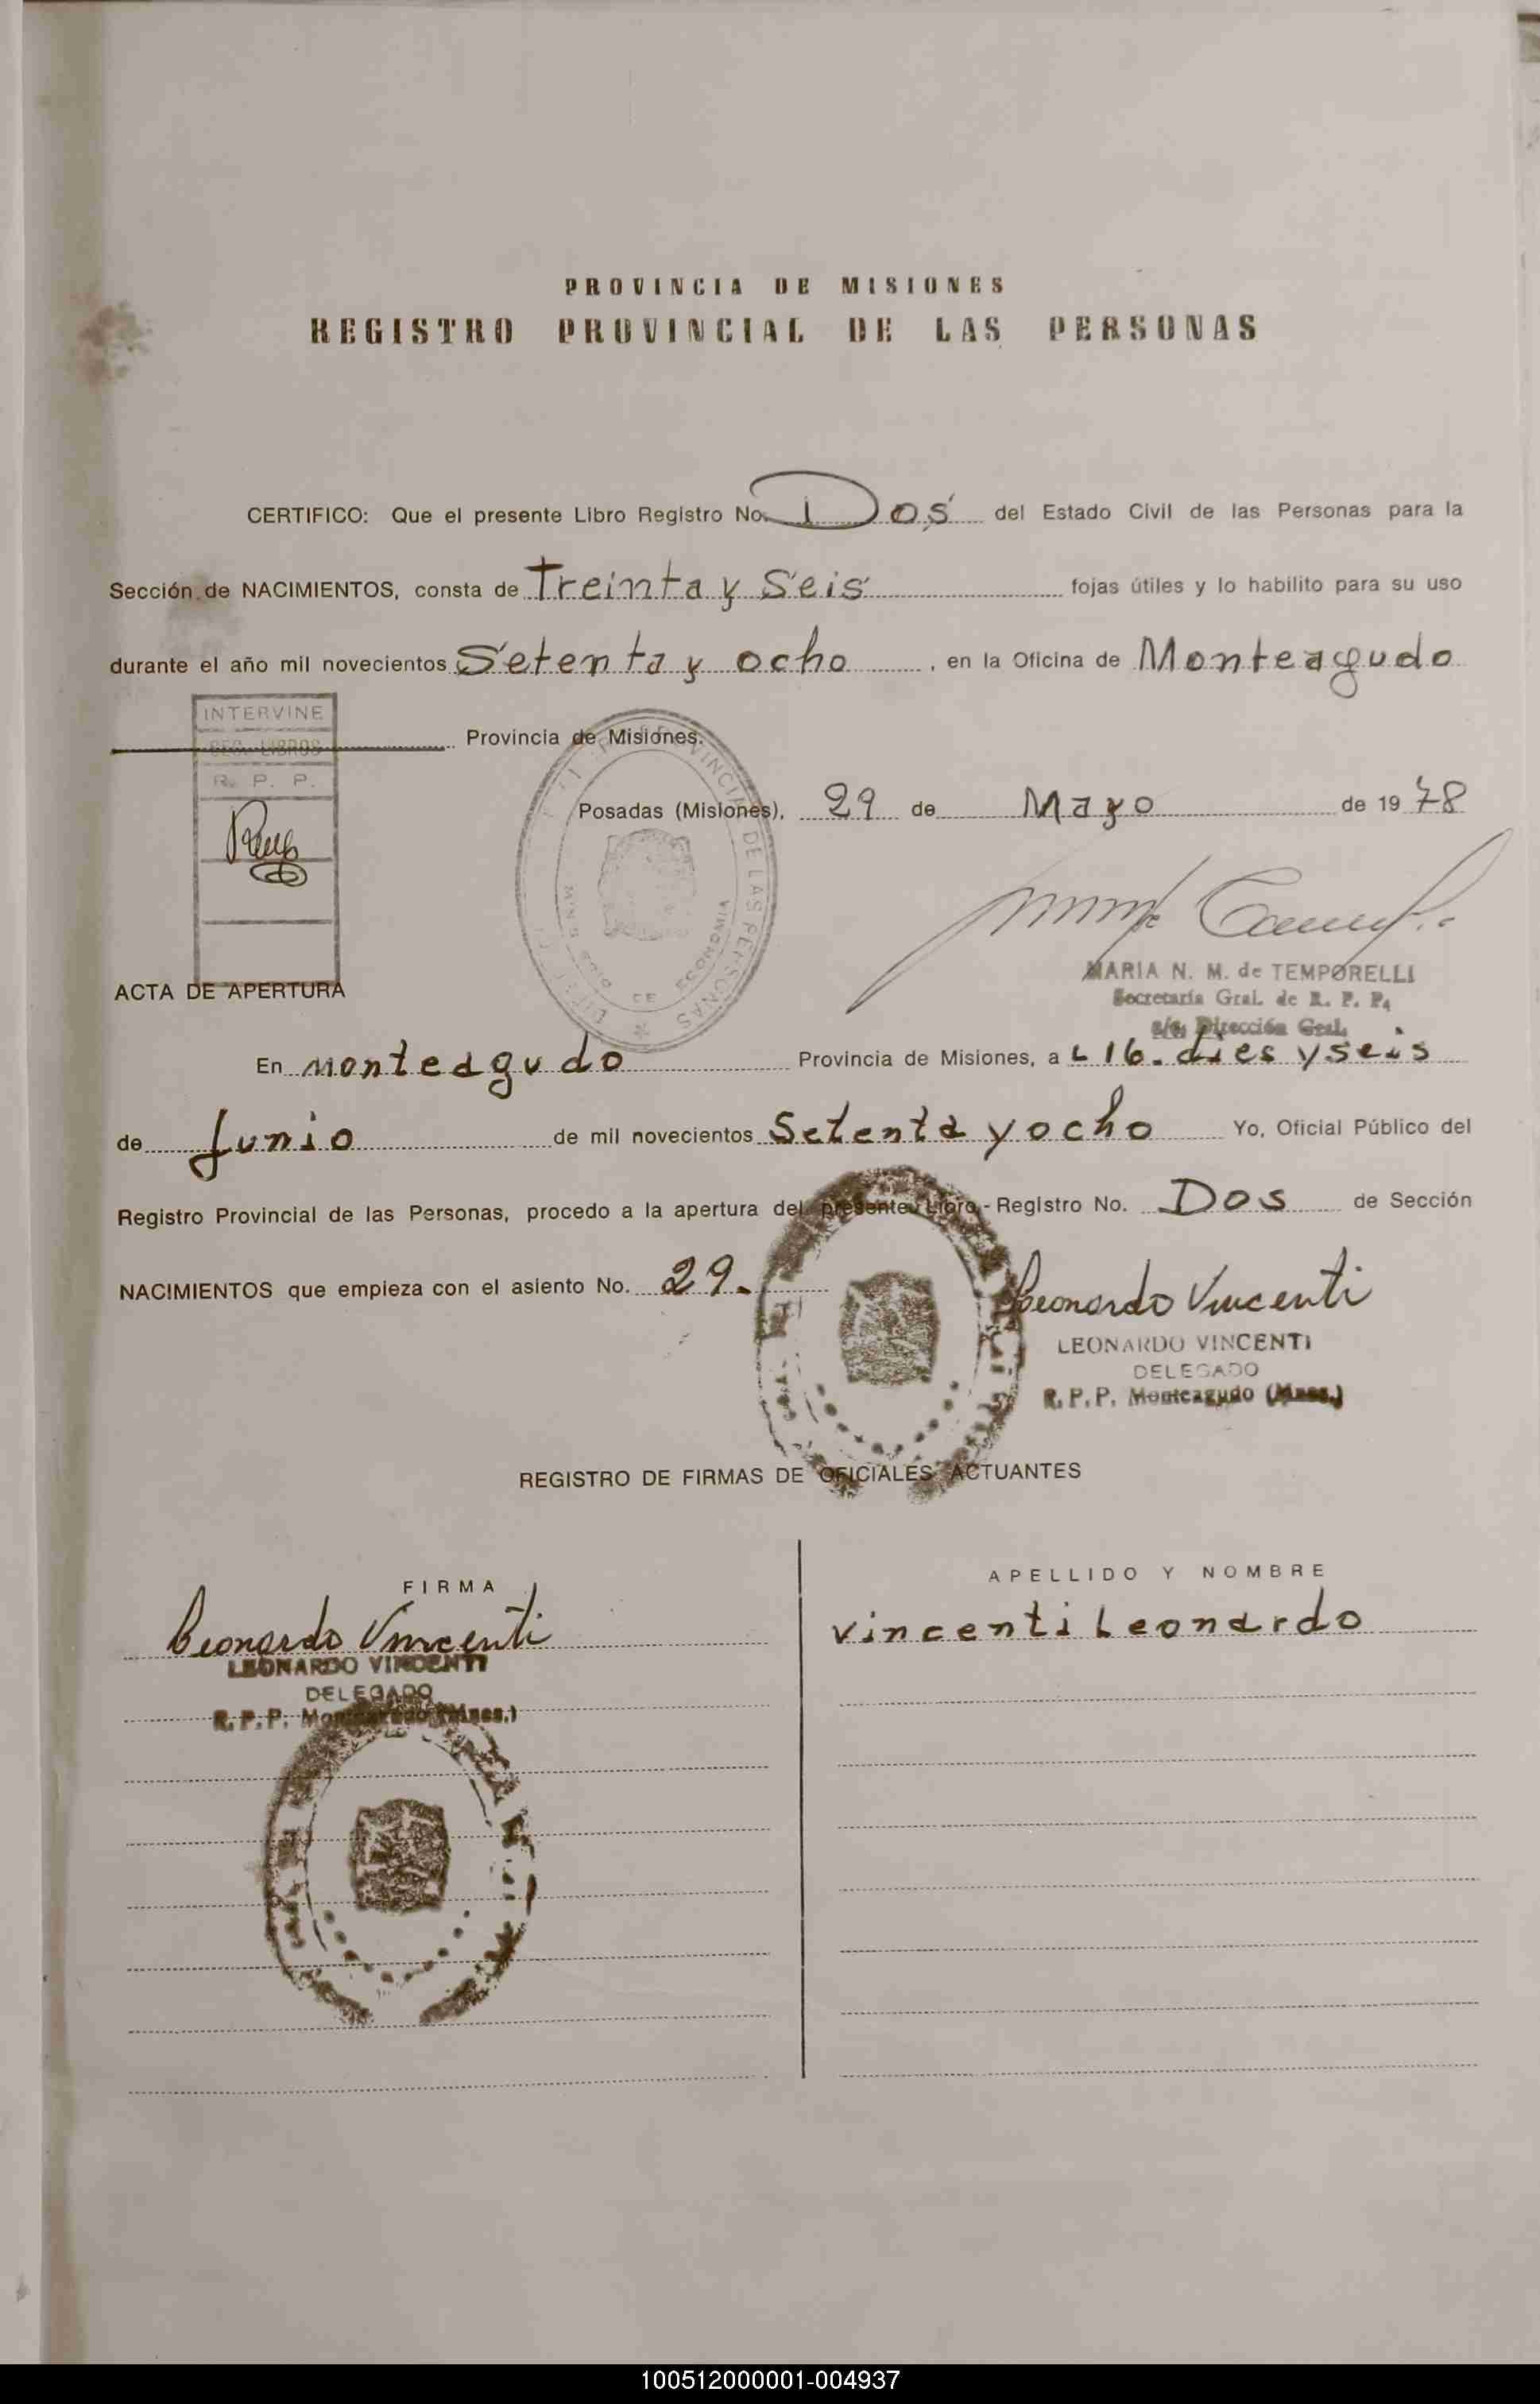 PROVINCIA DE MISIONES
REGISTRO PROVINCIAL DE LAS PERSONAS
CERTIFICO: Que el presente Libro Registro No. Dos del Estado Civil de las Personas para la
Sección de NACIMIENTOS, consta de Treinta y Seis fojas útiles y lo habilito para su uso
durante el año mil novecientos Setenta y ocho, en la Oficina de Monteagudo
Provincia de Misiones.
INTERVINE
SEC. LIBROS
R. P. P.
Posadas (Misiones), 29 de Mayo de 1978
MARIA N. M. de TEMPORELLI
Secretaría Gral. de R. P. P.
a/c. Dirección Gral.
ACTA DE APERTURA
En Monteagudo Provincia de Misiones, a L 16. dies y seis
de Junio de mil novecientos Setenta y ocho Yo, Oficial Público del
Registro Provincial de las Personas, procedo a la apertura del presente Libro - Registro No. Dos de Sección
NACIMIENTOS que empieza con el asiento No. 29.
Leonardo Vincenti
LEONARDO VINCENTI
DELEGADO
R. P. P. Monteagudo (Mnes.)
REGISTRO DE FIRMAS DE OFICIALES ACTUANTES
FIRMA
APELLIDO Y NOMBRE
Leonardo Vincenti
Vincenti Leonardo
LEONARDO VINCENTI
DELEGADO
R. P. P. Monteagudo (Mnes.)
100512000001-004937